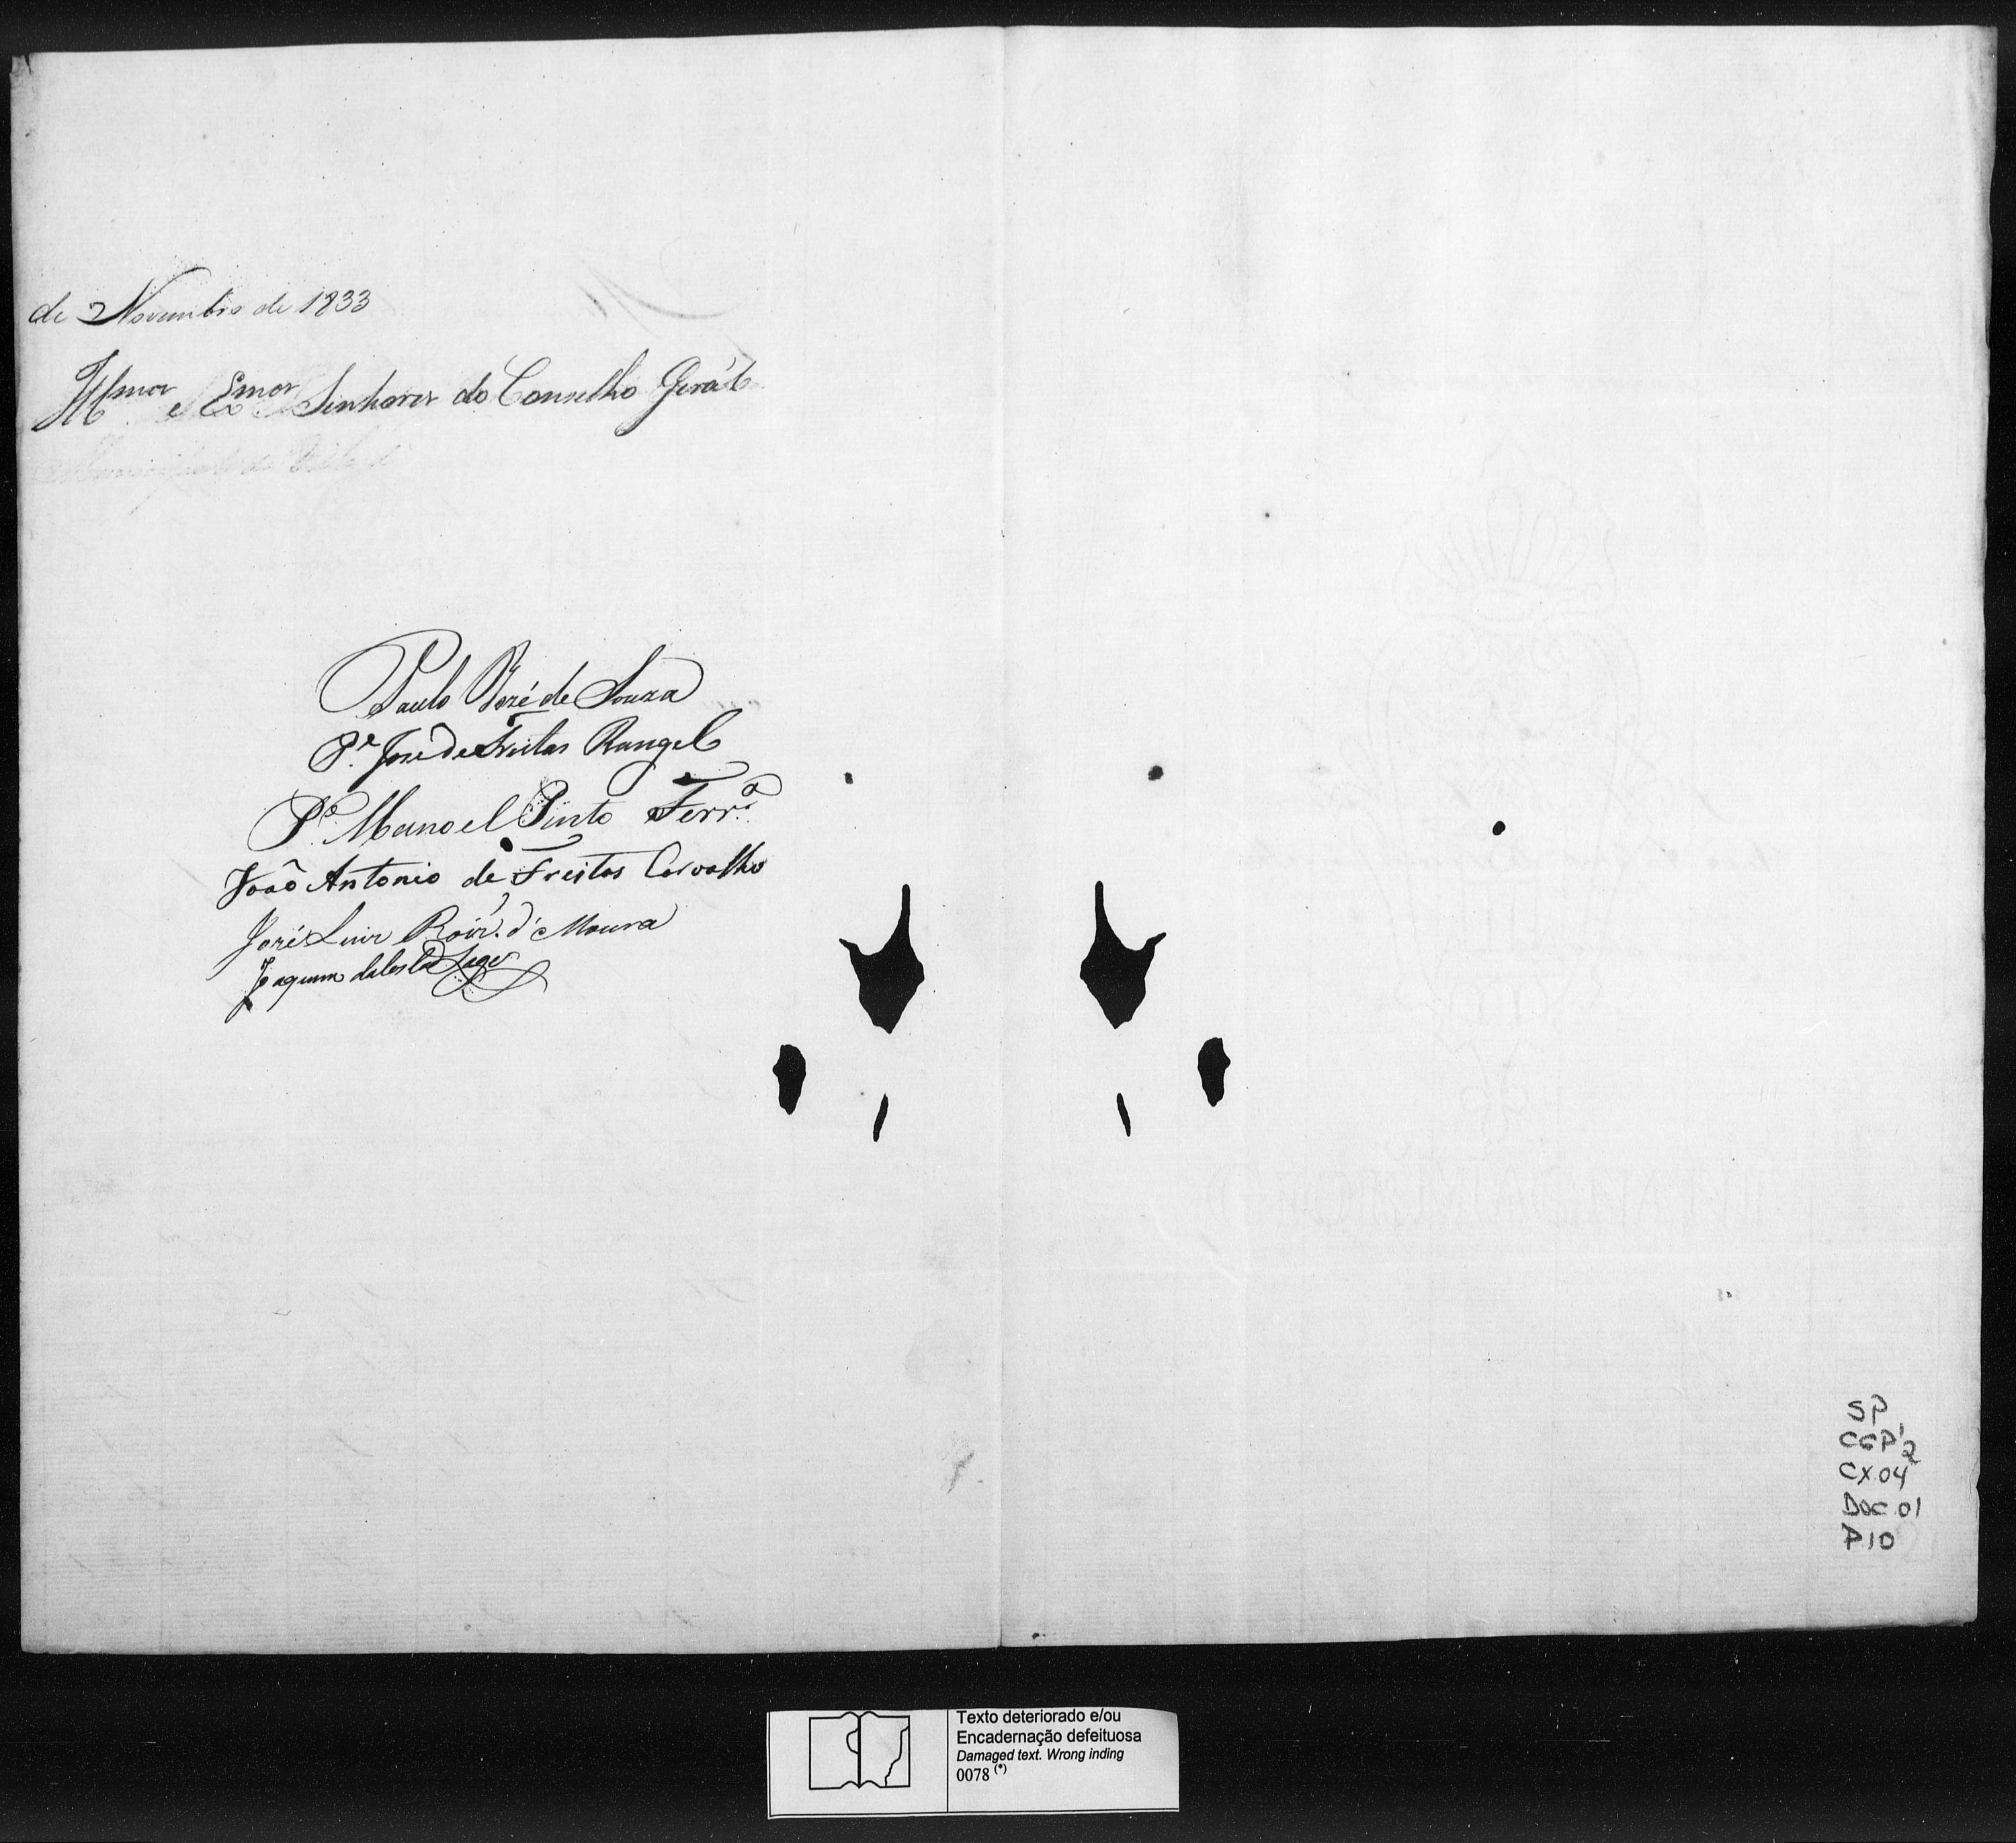 de Novembro de 1833
Illmos e Exmos Senhores do Conselho Gerál
Paulo José de Souza
Pe. José de Freitas Rangel
Pe. Manoel Pinto Ferra.
João Antonio de Freitas Carvalho
José Luis Roiz. d'Moura
Joaquim da Costa Lage
SP
CGP1,2
CX.04
DOC.01
P10
Texto deteriorado e/ou
Encadernação defeituosa
Damaged text. Wrong inding
0078 (*)